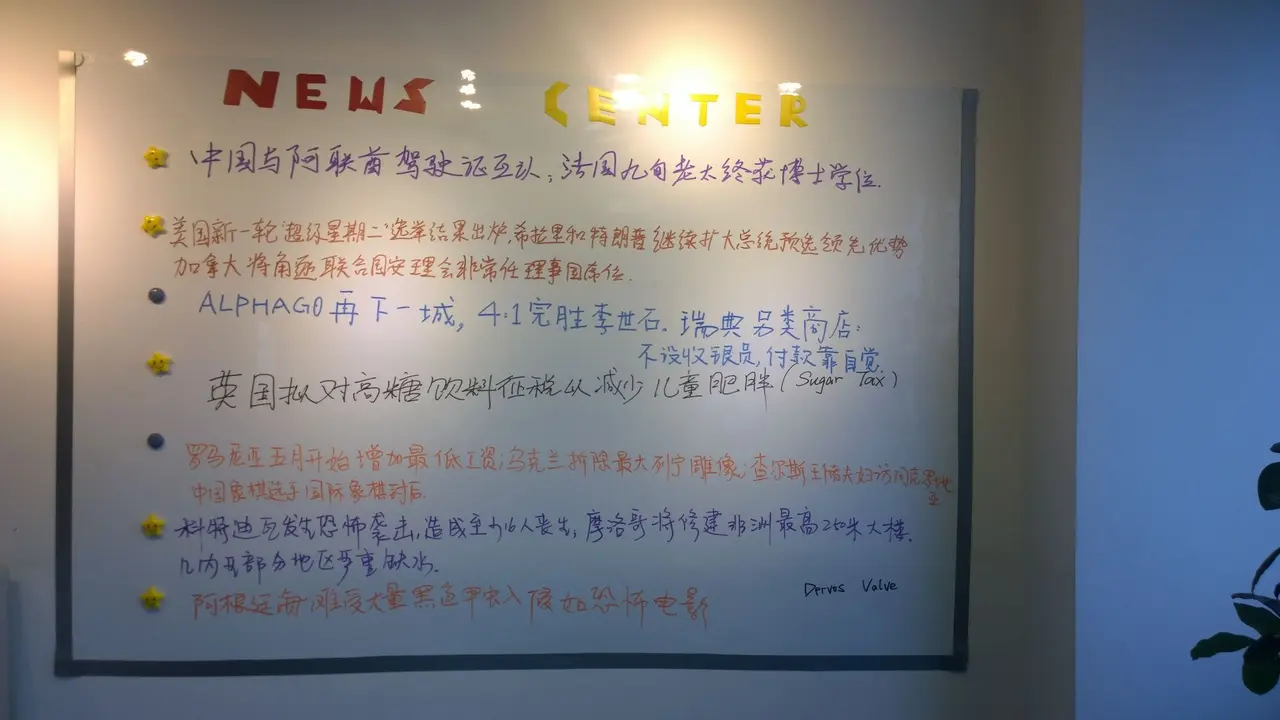 NEWS CENTER
中国与阿联酋驾驶证互认；法国九旬老太终获博士学位.
美国新一轮"超级星期二"选举结果出炉,希拉里和特朗普继续扩大总统预选领先优势
加拿大将角逐联合国安理会非常任理事国席位.
ALPHAGO再下一城, 4:1完胜李世石. 瑞典另类商店:
不设收银员,付款靠自觉.
英国拟对高糖饮料征税以减少儿童肥胖(Sugar Tax)
罗马尼亚五月开始增加最低工资;乌克兰拆除最大列宁雕像;查尔斯王储夫妇访问克罗地亚
中国象棋选手国际象棋封后.
科特迪瓦发生恐怖袭击,造成至少16人丧生;摩洛哥将修建非洲最高250米大楼.
几内亚部分地区严重缺水.
阿根廷海滩受大量黑色甲虫入侵如恐怖电影
Dervos Valve